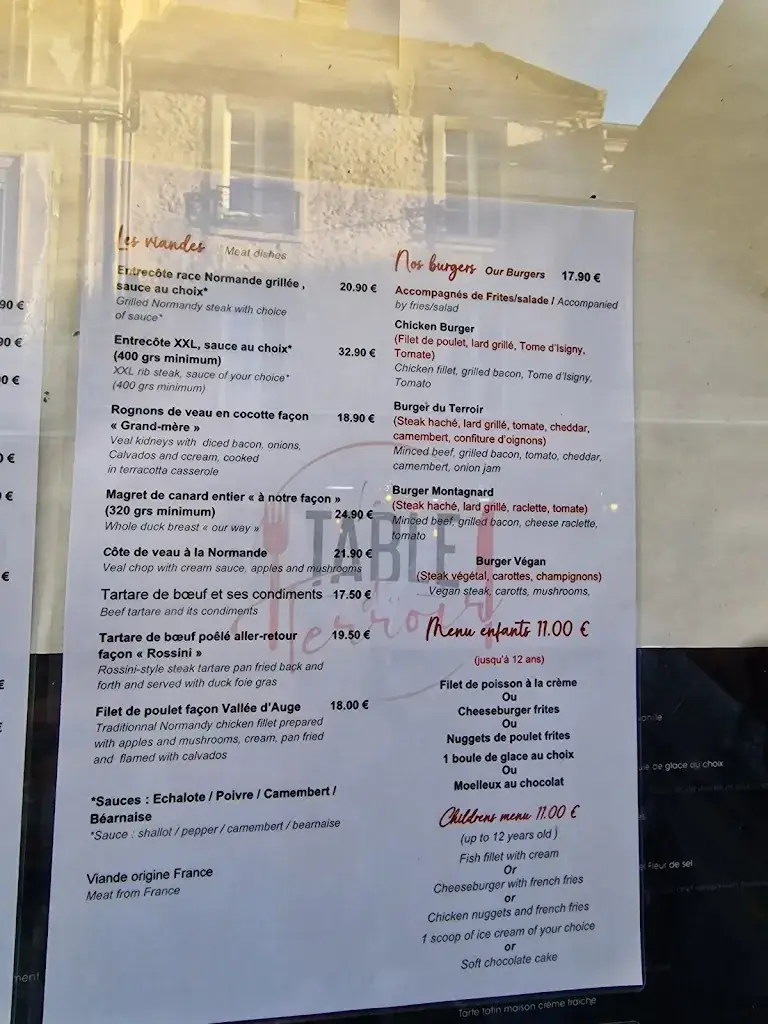 Les viandes Meat dishes
Entrecôte race Normande grillée , 20.90 €
sauce au choix*
Grilled Normandy steak with choice
of sauce*
Entrecôte XXL, sauce au choix* 32.90 €
(400 grs minimum)
XXL rib steak, sauce of your choice*
(400 grs minimum)
Rognons de veau en cocotte façon 18.90 €
« Grand-mère »
Veal kidneys with diced bacon, onions,
Calvados and ccream, cooked
in terracotta casserole
Magret de canard entier « à notre façon »
(320 grs minimum) 24.90 €
Whole duck breast « our way »
Côte de veau à la Normande 21.90 €
Veal chop with cream sauce, apples and mushrooms
Tartare de bœuf et ses condiments 17.50 €
Beef tartare and its condiments
Tartare de bœuf poêlé aller-retour 19.50 €
façon « Rossini »
Rossini-style steak tartare pan fried back and
forth and served with duck foie gras
Filet de poulet façon Vallée d'Auge 18.00 €
Traditionnal Normandy chicken fillet prepared
with apples and mushrooms, cream, pan fried
and flamed with calvados
*Sauces : Echalote / Poivre / Camembert /
Béarnaise
*Sauce : shallot / pepper / camembert / bearnaise
Viande origine France
Meat from France
Nos burgers Our Burgers 17.90 €
Accompagnés de Frites/salade / Accompanied
by fries/salad
Chicken Burger
(Filet de poulet, lard grillé, Tome d'Isigny,
Tomate)
Chicken fillet, grilled bacon, Tome d'Isigny,
Tomato
Burger du Terroir
(Steak haché, lard grillé, tomate, cheddar,
camembert, confiture d'oignons)
Minced beef, grilled bacon, tomato, cheddar,
camembert, onion jam
Burger Montagnard
(Steak haché, lard grillé, raclette, tomate)
Minced beef, grilled bacon, cheese raclette,
tomato
Burger Végan
(Steak végétal, carottes, champignons)
Vegan steak, carotts, mushrooms,
Menu enfants 11.00 €
(jusqu'à 12 ans)
Filet de poisson à la crème
Ou
Cheeseburger frites
Ou
Nuggets de poulet frites
1 boule de glace au choix
Ou
Moelleux au chocolat
Childrens menu 11.00 €
(up to 12 years old )
Fish fillet with cream
Or
Cheeseburger with french fries
or
Chicken nuggets and french fries
1 scoop of ice cream of your choice
or
Soft chocolate cake
TABLE
Terroir
90 €
90 €
0 €
€
€
€
€
de glace au choix
Fleur de sel
Tarte tatin maison crème fraiche